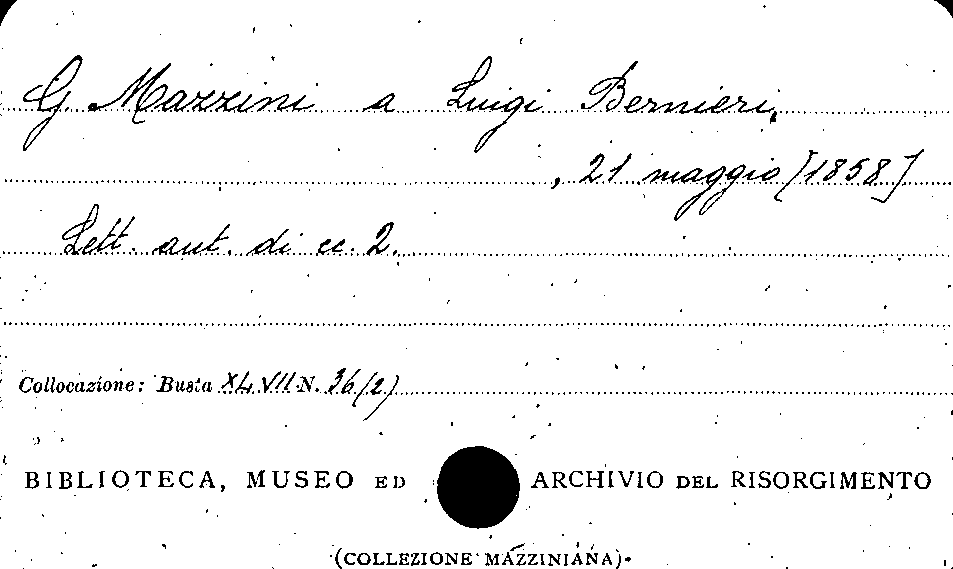 G. Mazzini a Luigi Bernieri,
, 21 maggio [1858]
Lett. aut. di cc. 2.
Collocazione: Busta XLVII N. 36(2)
BIBLIOTECA, MUSEO ED ARCHIVIO DEL RISORGIMENTO
(COLLEZIONE MAZZINIANA)